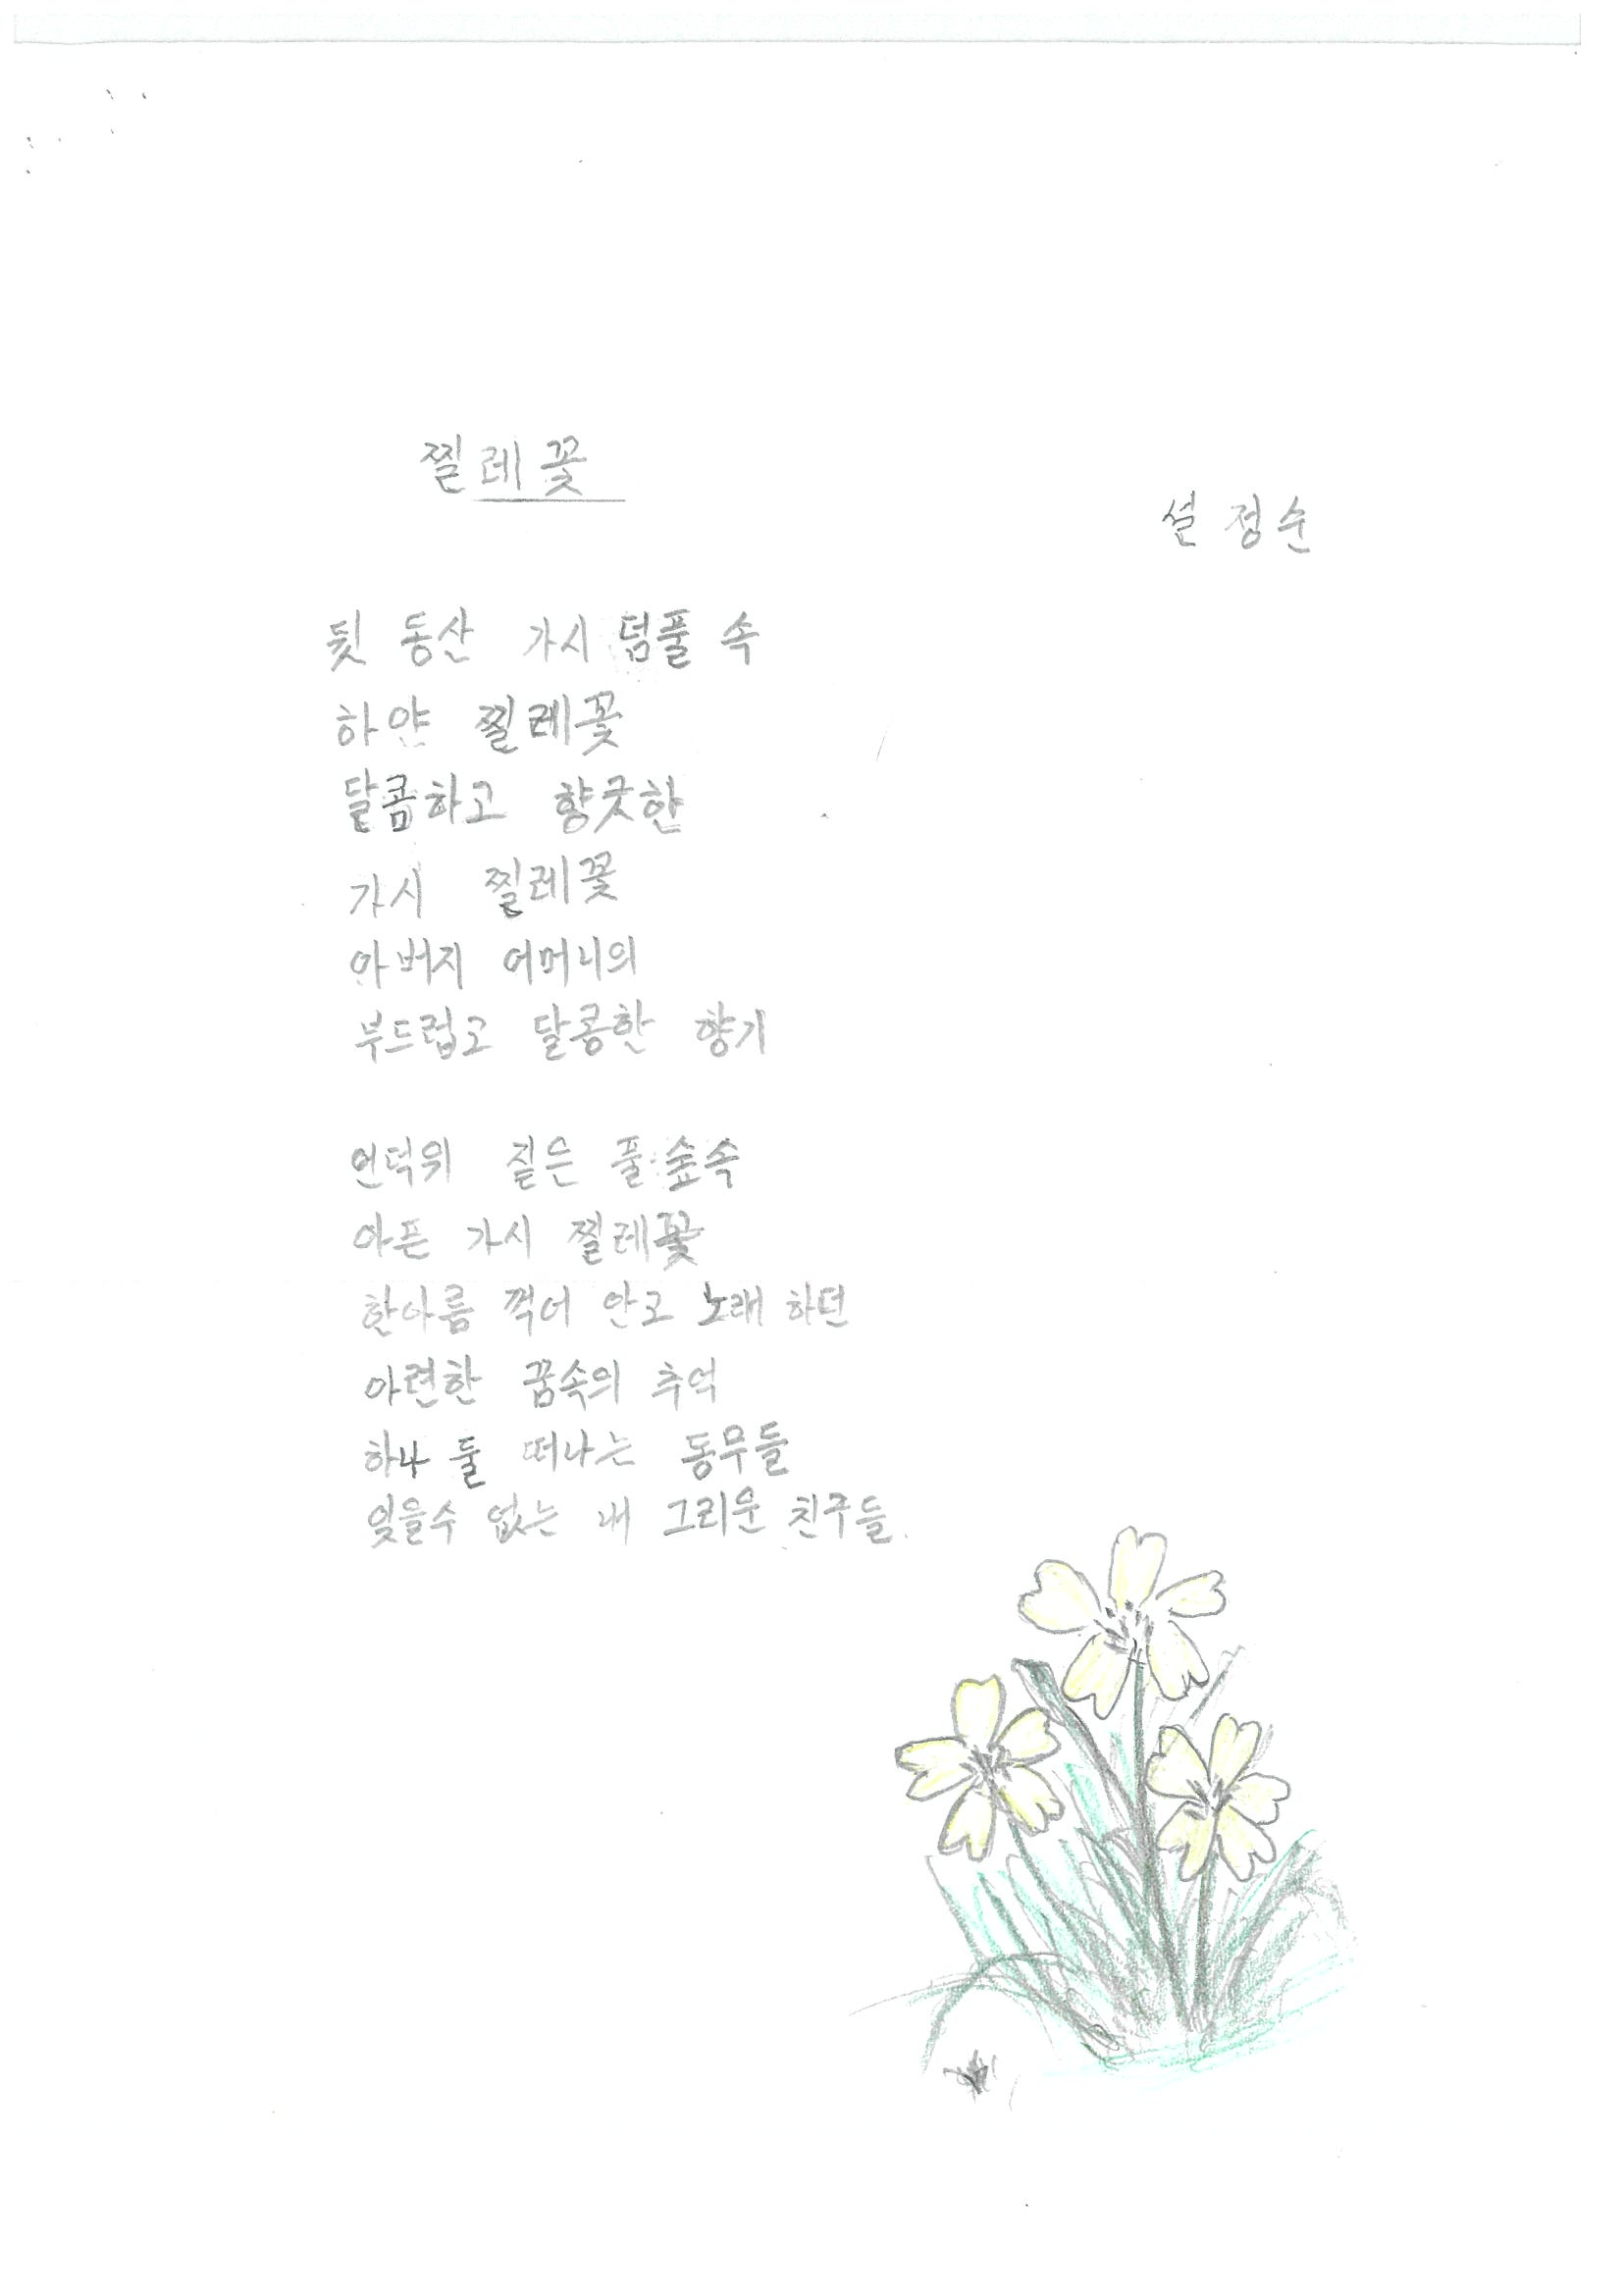 찔레꽃
설정순
뒷 동산 가시 덤풀 속
하얀 찔레꽃
달콤하고 향긋한
가시 찔레꽃
아버지 어머니의
부드럽고 달콩한 향기
언덕위 짙은 풀숲속
아픈 가시 찔레꽃
한아름 꺽어 안고 노래 하던
아련한 꿈속의 추억
하나 둘 떠나는 동무들
잊을수 없는 내 그리운 친구들.